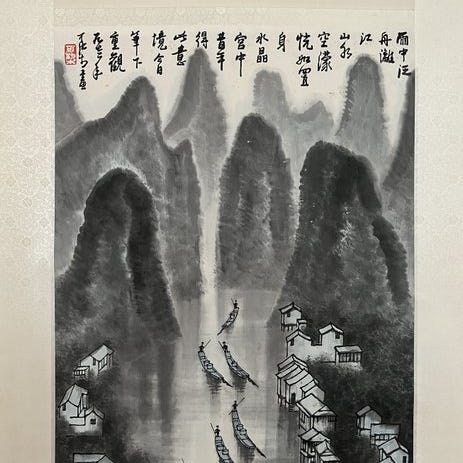 雨中泛
舟漓
江
山水
空濛
恍如置
身
水晶
宫中
昔年
得
此意
境今日
笔下
重觀